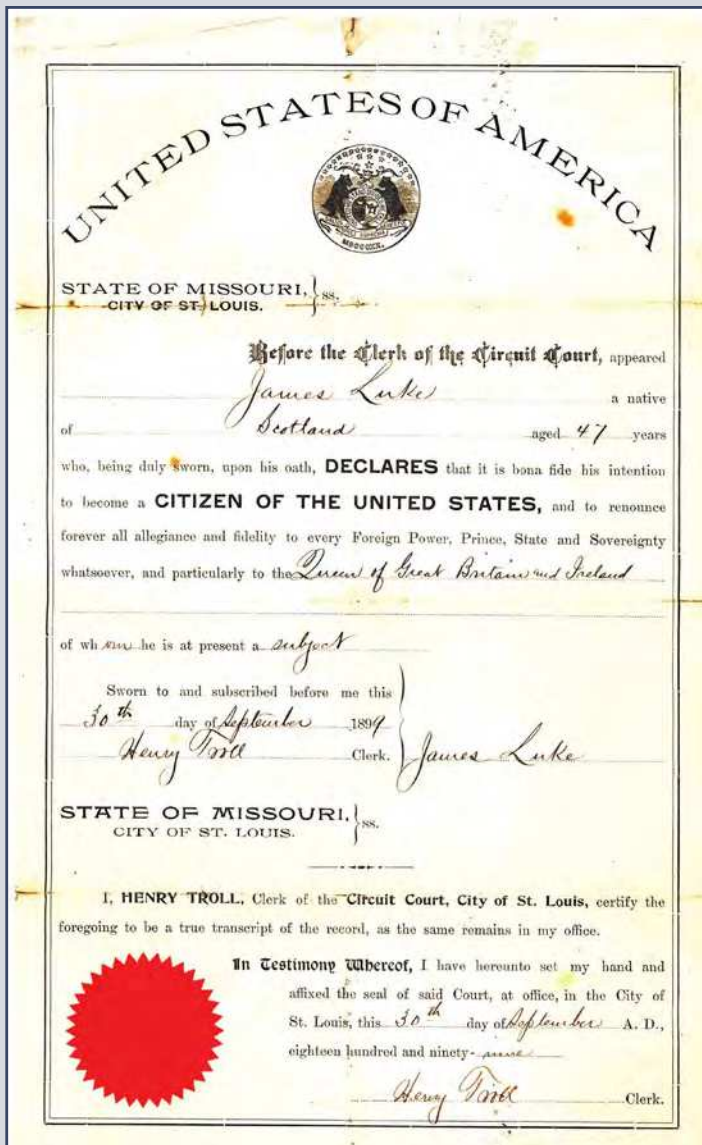 UNITED STATES OF AMERICA
MDCCCXX.
STATE OF MISSOURI, } ss.
CITY OF ST. LOUIS.
Before the Clerk of the Circuit Court, appeared
James Luke a native
of Scotland aged 47 years
who, being duly sworn, upon his oath, DECLARES that it is bona fide his intention
to become a CITIZEN OF THE UNITED STATES, and to renounce
forever all allegiance and fidelity to every Foreign Power, Prince, State and Sovereignty
whatsoever, and particularly to the Queen of Great Britain and Ireland
of whom he is at present a subject
Sworn to and subscribed before me this
30th day of September 1899
Henry Troll Clerk. James Luke
STATE OF MISSOURI, } ss.
CITY OF ST. LOUIS.
I, HENRY TROLL, Clerk of the Circuit Court, City of St. Louis, certify the
foregoing to be a true transcript of the record, as the same remains in my office.
In Testimony Whereof, I have hereunto set my hand and
affixed the seal of said Court, at office, in the City of
St. Louis, this 30th day of September A. D.,
eighteen hundred and ninety-nine
Henry Troll Clerk.